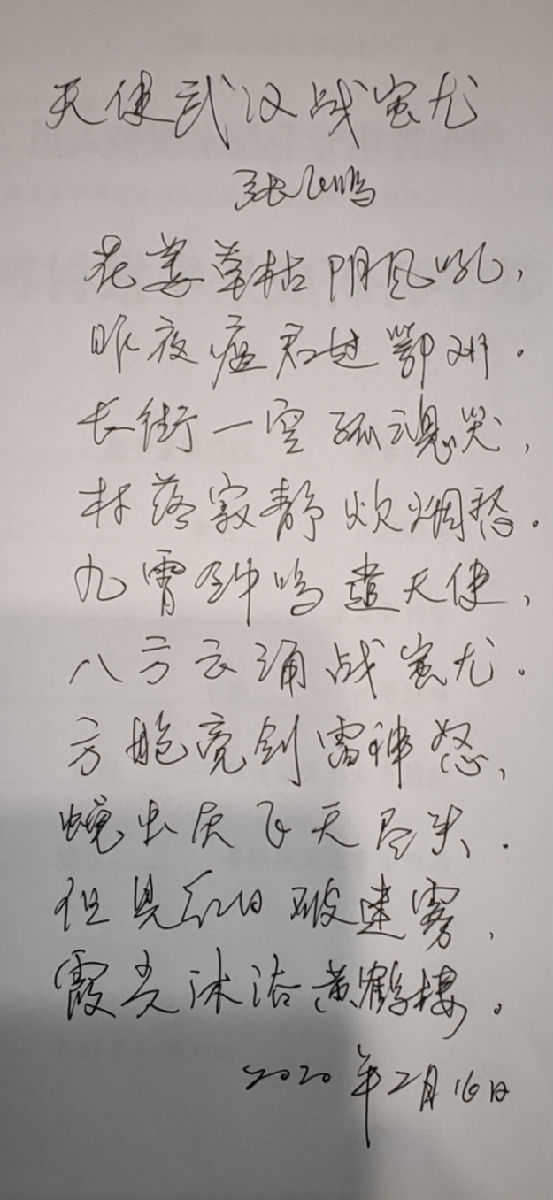 天使武汉战蚩尤
张飞鸣
花萎草枯阴风吼,
昨夜瘟君过鄂州.
长街一空孤魂哭,
村落寂静炊烟愁.
九霄钟鸣遣天使,
八方云涌战蚩尤.
方舱亮剑雷神怒,
蠛虫灰飞天尽头.
但见红日破迷雾,
霞光沐浴黄鹤楼.
2020年2月16日